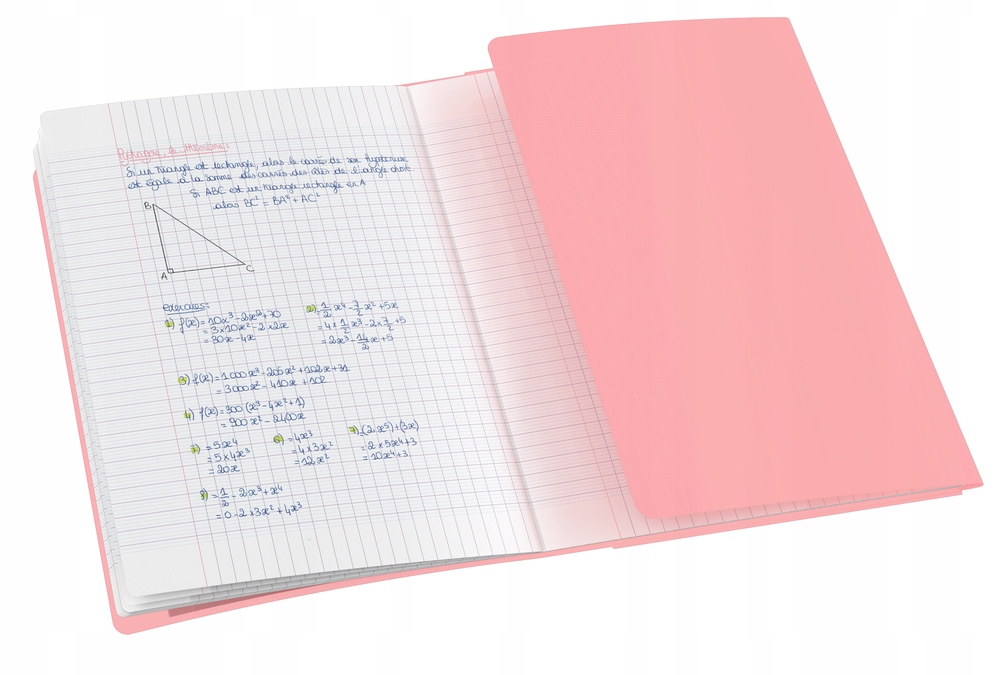 Pythagore, le théorème:
Si un triangle est rectangle, alors le carré de son hypoténuse
est égale à la somme des carrés des côtés de l'angle droit
Si ABC est un triangle rectangle en A
alors BC² = BA² + AC²
B
A
C
exercices:
1) f(x) = 10x³ - 2x² + 70
= 3×10x² - 2×2x
= 30x - 4x
2) = 1/2 x⁴ - 7/2 x² + 5x
= 4 × 1/2 x³ - 2 × 7/2 + 5
= 2x³ - 14/2 x + 5
3) f(x) = 1000x³ - 205x² + 102x + 31
= 3000x² - 410x + 102
4) f(x) = 300 (x³ - 4x² + 1)
= 900x² - 2400x
= 5x⁴
= 5×4x³
= 20x
6) = 4x³
= 4×3x²
= 12x²
7) = (2x⁵) + (3x)
= 2×5x⁴+3
= 10x⁴+3
8) = 1/2 - 2x³ + x⁴
= 0 - 2×3x² + 4x³